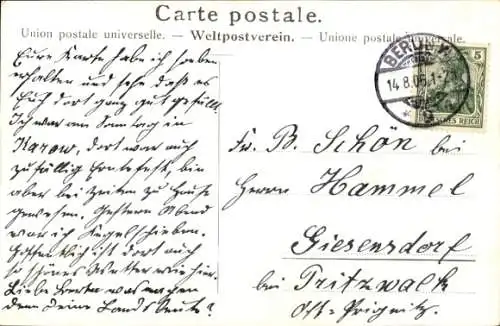 Carte postale.
Union postale universelle. — Weltpostverein. — Unione postale universale.
Eure Karte habe ich soeben
erhalten und sehe daß es
Euch dort ganz gut gefällt.
Ich war am Sonntag in
Karow, dort war auch
zufällig Erntefest, bin
aber bei Zeiten zu Hause
gewesen. Gestern Abend
war ich Kegelschieben.
Hoffentlich ist dort auch
so schönes Wetter wie hier.
Liebe Berta was machen
denn Deine Landsleute?
BERLIN
14.8.06.1-
5
REICH
Fr. B. Schön bei
Herrn Hammel
Giesensdorf
bei Pritzwalk
Ost-Prignitz.